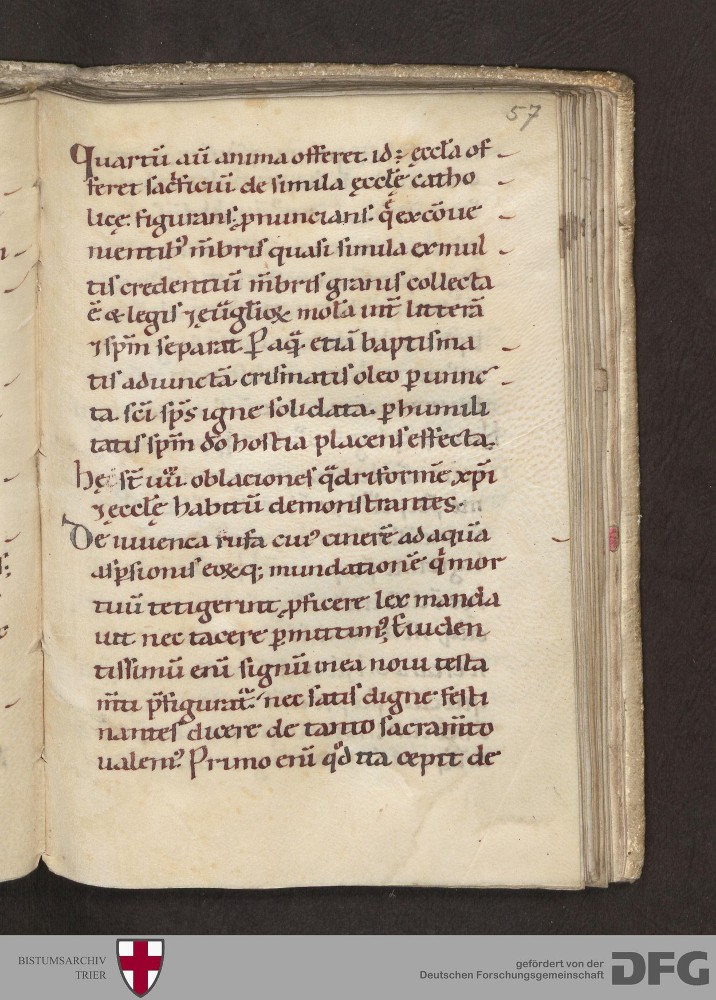 57
Quartū aū anima offeret. id÷ ęccl̄a of
feret sac̓ficiū de simila ęccl̄ę catho
licę. figurans, ꝓnuncians. q̓ ex cōue
nientib᷒ m̄bris quasi simila ex mul
tis credentiū m̄bris granis collecta
ē & legis ⁊ eūgl̄ioꝝ mola uīt litterā
⁊ sp̄m separat. ꝑ aquā etiā baptisma
tis adiunctā. crismatis oleo ꝑunc
ta. sc̄i sp̄s igne solidata. ꝑ humili
tatis sp̄m dō hostia placens effecta.
hęc st̄ iiii oblaciones q̄driformē xp̄i
⁊ ęccl̄ę habitū demonstrantes.
De iuuenca rufa cui᷒ cinerē ad aquā
asꝑsionis eoꝝq; mundationē q̓ mor
tuū tetigerint, ꝓficere lex manda
uit nec tacere ꝑmittim᷒. Euiden
tissimū enī signū in ea noui testa
m̄ti p̄figurat᷒. nec satis digne festi
nantes dicere de tanto sacram̄to
ualem᷒. Primo enī qd̄ ita cepit de
BISTUMSARCHIV
TRIER
gefördert von der
Deutschen Forschungsgemeinschaft
DFG